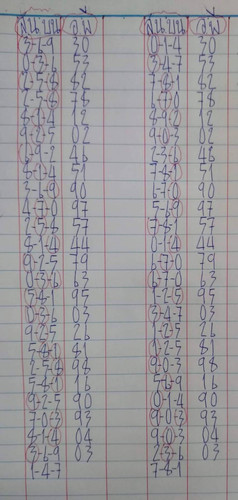 ลุ้นบน ลาพ ลุ้นบน ลาพ
3-6-9 30 0-1-4 30
0-3-6 53 3-4-7 53
2-5-8 62 7-8-1 62
2-5-8 78 6-7-0 78
8-1-4 12 8-9-2 12
9-2-5 02 9-0-3 02
6-9-2 46 2-3-6 46
8-1-4 51 7-8-1 51
3-6-9 90 6-7-0 90
4-7-0 97 5-6-9 97
2-5-8 57 7-8-1 57
8-1-4 44 0-1-4 44
9-2-5 79 6-7-0 79
0-3-6 63 6-7-0 63
5-4-1 95 1-2-5 95
0-3-6 03 3-4-7 03
9-2-5 26 1-2-5 26
5-4-1 81 1-2-5 81
2-5-4 98 9-0-3 98
5-4-1 16 5-6-9 16
9-2-5 90 0-1-4 90
7-0-3 93 9-0-3 93
4-1-4 04 9-0-3 04
3-6-9 03 2-3-6 03
1-4-7 7-4-1